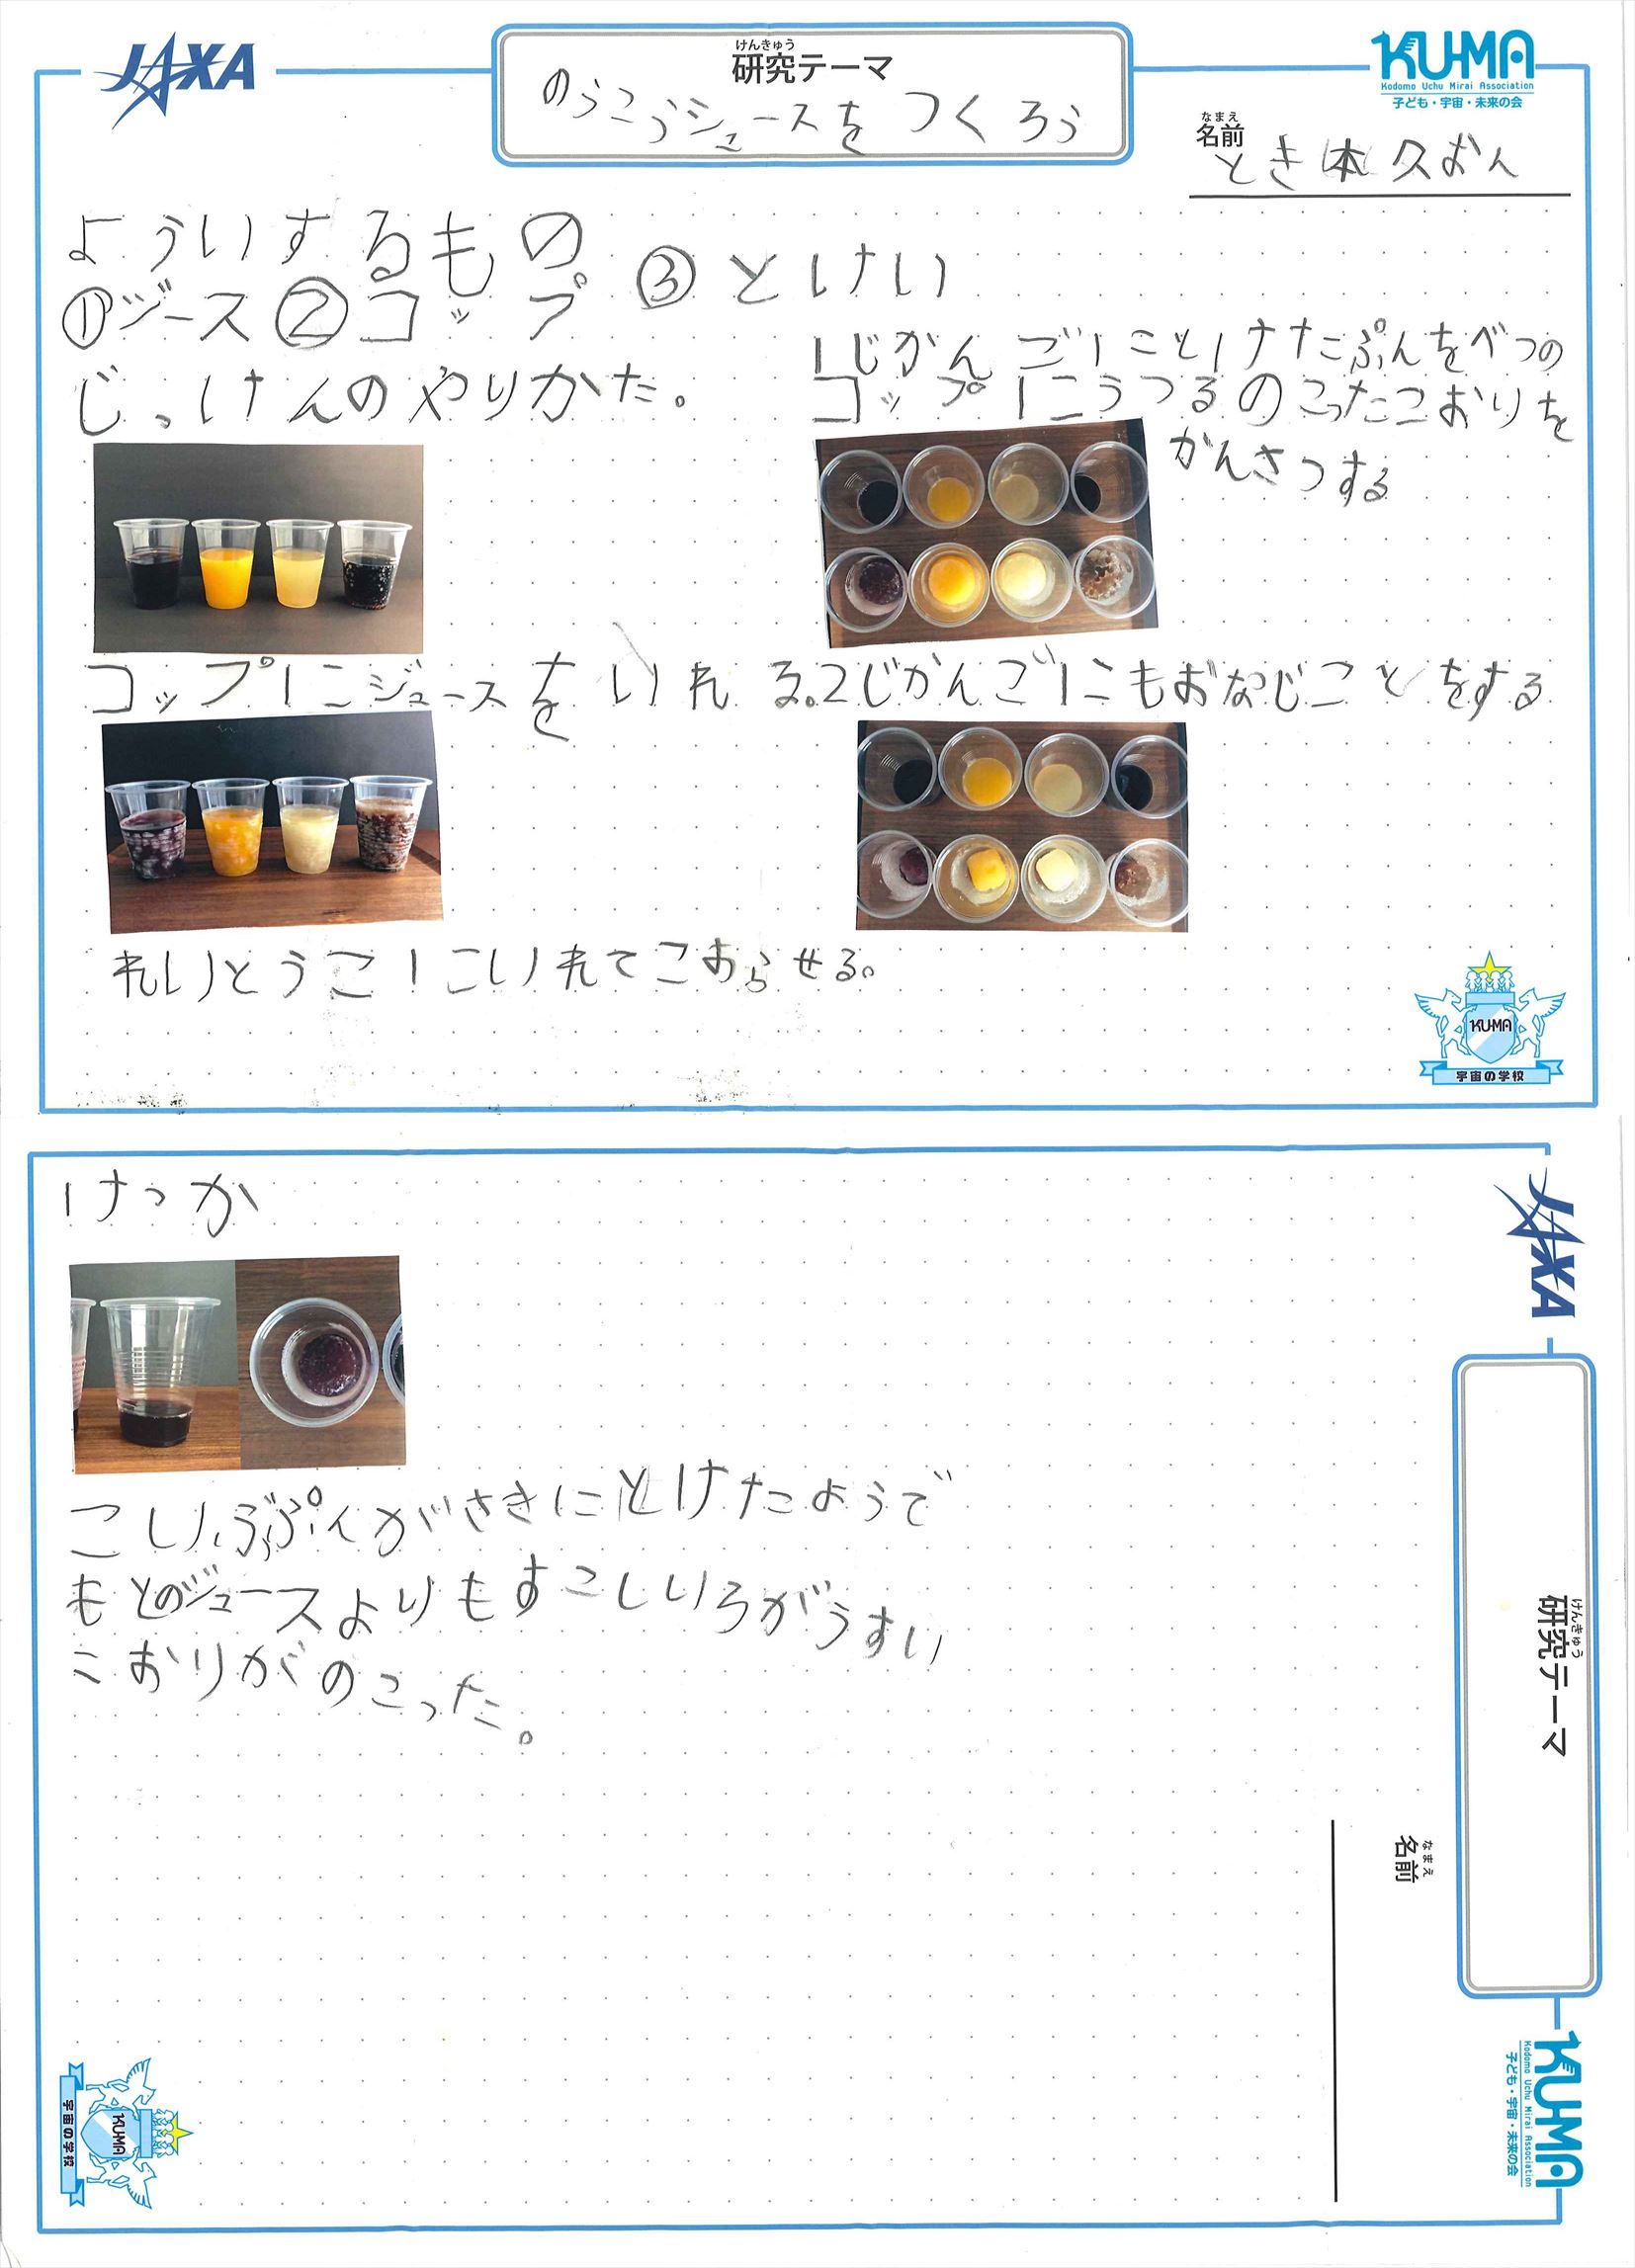 JAXA
けんきゅう
研究テーマ
のうこうジュースをつくろう
KU-MA
Kodomo Uchu Mirai Association
子ども・宇宙・未来の会
なまえ
名前
とき本久おん
よういするもの
①ジース②コップ ③とけい
じっけんのやりかた。
コップにジュースをいれる。
れいとうこにいれてこおらせる。
1じかんごにとけたぶんをべつの
コップにうつるのこったこおりを
がんさつする
2じかんごにもおなじことをする
KU-MA
宇宙の学校
けっか
こいぶぶんがさきにとけたようで
もとのジュースよりもすこしいろがうすい
こおりがのこった。
JAXA
けんきゅう
研究テーマ
なまえ
名前
KU-MA
Kodomo Uchu Mirai Association
子ども・宇宙・未来の会
KU-MA
宇宙の学校